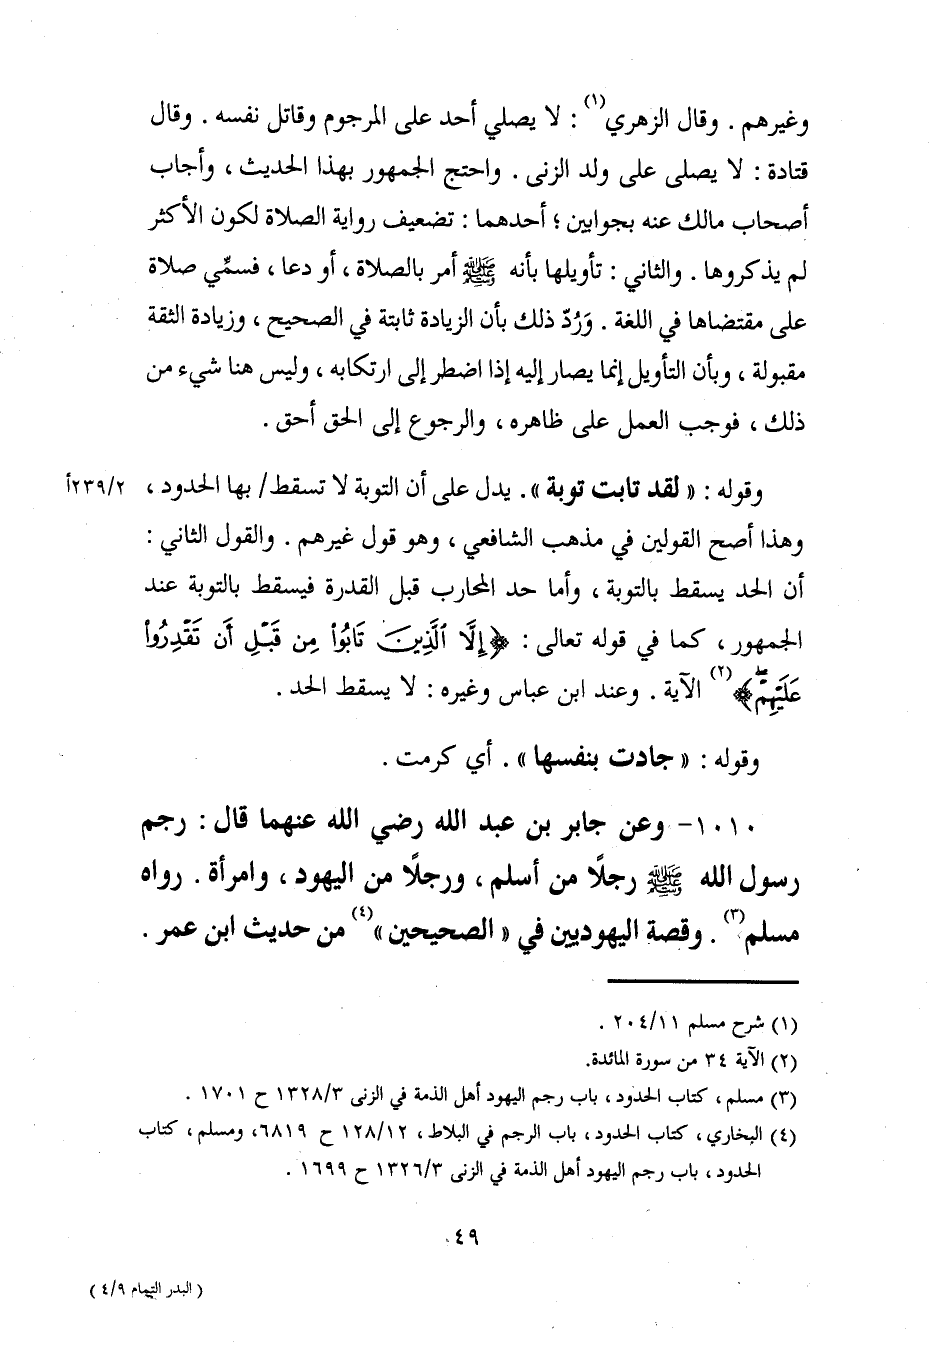 وغيرهم . وقال الزهري(١) : لا يصلي أحد على المرجوم وقاتل نفسه . وقال
قتادة : لا يصلى على ولد الزنى . واحتج الجمهور بهذا الحديث ، وأجاب
أصحاب مالك عنه بجوابين ؛ أحدهما : تضعيف رواية الصلاة لكون الأكثر
لم يذكروها . والثاني : تأويلها بأنه ﷺ أمر بالصلاة ، أو دعا ، فسمِّي صلاة
على مقتضاها في اللغة . وَرُدّ ذلك بأن الزيادة ثابتة في الصحيح ، وزيادة الثقة
مقبولة ، وبأن التأويل إنما يصار إليه إذا اضطر إلى ارتكابه ، وليس هنا شيء من
ذلك ، فوجب العمل على ظاهره ، والرجوع إلى الحق أحق .
وقوله : « لقد تابت توبة » . يدل على أن التوبة لا تسقط/ بها الحدود ، ٢٣٩/٢أ
وهذا أصح القولين في مذهب الشافعي ، وهو قول غيرهم . والقول الثاني :
أن الحد يسقط بالتوبة ، وأما حد المحارب قبل القدرة فيسقط بالتوبة عند
الجمهور ، كما في قوله تعالى : ﴿إِلَّا ٱلَّذِينَ تَابُواْ مِن قَبْلِ أَن تَقْدِرُواْ
عَلَيْهِمْۖ﴾(٢) الآية . وعند ابن عباس وغيره : لا يسقط الحد .
وقوله : « جادت بنفسها » . أي كرمت .
١٠١٠- وعن جابر بن عبد الله رضي الله عنهما قال : رجم
رسول الله ﷺ رجلًا من أسلم ، ورجلًا من اليهود ، وامرأة . رواه
مسلم(٣) . وقصة اليهوديين في « الصحيحين »(٤) من حديث ابن عمر .
(١) شرح مسلم ٢٠٤/١١ .
(٢) الآية ٣٤ من سورة المائدة.
(٣) مسلم ، كتاب الحدود ، باب رجم اليهود أهل الذمة في الزنى ١٣٢٨/٣ ح ١٧٠١ .
(٤) البخاري ، كتاب الحدود ، باب الرجم في البلاط ، ١٢٨/١٢ ح ٦٨١٩، ومسلم ، كتاب
الحدود ، باب رجم اليهود أهل الذمة في الزنى ١٣٢٦/٣ ح ١٦٩٩ .
٤٩
( البدر التمام ٤/٩ )